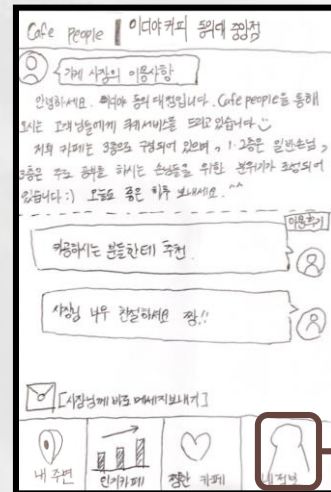 Cafe People | 이디야커피 동의대 중앙점
가게 사장의 이용사항
안녕하세요. 이디야 동의대점입니다. Cafe people을 통해
오시는 고객님들에게 쿠키서비스를 드리고 있습니다
저희 카페는 3층으로 구성되어 있으며, 1·2층은 일반손님,
3층은 주로 공부를 하시는 손님들을 위한 분위기가 조성되어
있습니다 :) 오늘도 좋은 하루 보내세요. ^^
이용후기
카공하시는 분들한테 추천.
사장님 너무 친절하세요 짱!!
[사장님께 바로 메세지보내기]
내 주변
인기카페
찜한 카페
내정보